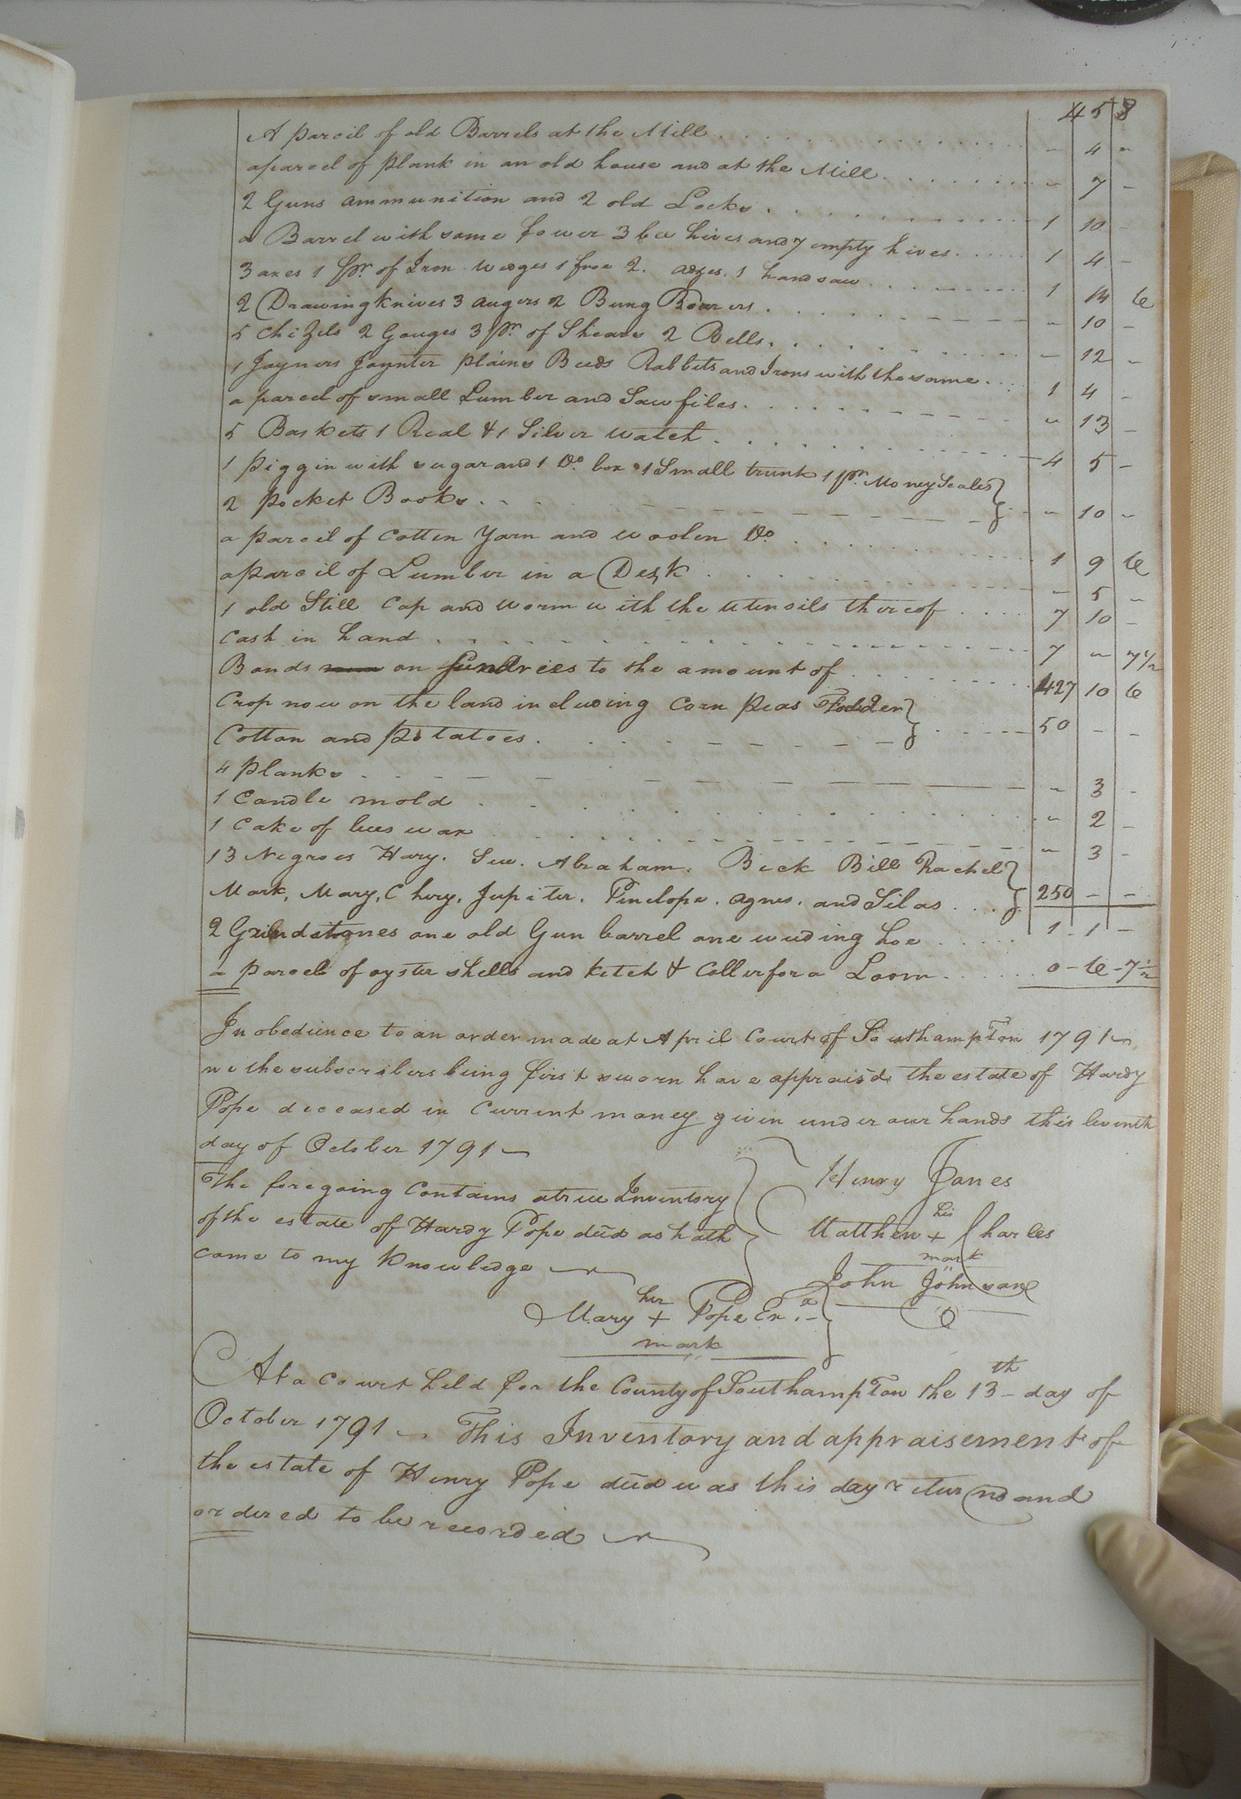 458
A parcil of old Barrels at the Mill - 4 -
a parcel of plank in an old house and at the Mill - 7 -
2 Guns ammunition and 2 old Locks 1 10 -
a Barrel with some fower 3 bee hives and 7 empty hives 1 4 -
3 axes 1 pr. of Iron wedges 1 froe 2. adzes. 1 handsaw 1 14 6
2 Drawing knives 3 augers 2 Bung Boarers - 10 -
5 Chizils 2 Gouges 3 pr. of Shears 2 Bells - 12 -
1 Joyners Joynter plains Beeds Rabbits and Irons with the same 1 4 -
a parcel of small Lumber and Saw files - 13 -
5 Baskets 1 Real & 1 Silver watch 4 5 -
1 piggin with sugar and 1 Do. box 1 Small trunk 1 pr. Money Scales
2 pocket Books - 10 -
a parcel of Cotten Yarn and woolen Do. 1 9 6
a parcil of Lumber in a Desk - 5 -
1 old Still Cap and worm with the utensils thereof 7 10 -
Cash in hand 7 - 7½
Bonds on Sundrees to the amount of 427 10 6
Crop now on the land including Corn peas Fodder
Cotton and potatoes 50 - -
4 planks - 3 -
1 Candle mold - 2 -
1 Cake of bees wax - 3 -
13 Negroes Hary. Sue. Abraham. Beck Bill Rachel
Mark, Mary, Chery, Jupiter. Penelope. Agnes. and Silas 250 - -
2 Grindstones one old Gun barrel one weeding hoe 1 - 1 -
a parcel of oyster shells and ketch & Coller for a Loom 0 - 6 - 7½
In obedience to an order made at April Court of Southampton 1791
we the subscribers being first sworn have apprais'd the estate of Hardy
Pope deceased in Current money given under our hands this leventh
day of October 1791
The foregoing Contains a true Inventory
of the estate of Hardy Pope decd as hath
came to my Knowledge
Henry Jones
his
Matthew + Charles
mark
John Johnson
her
Mary + Pope Ex.a
mark
At a Court held for the County of Southampton the 13th day of
October 1791 This Inventory and appraisement of
the estate of Henry Pope decd was this day returnd and
ordered to be recorded